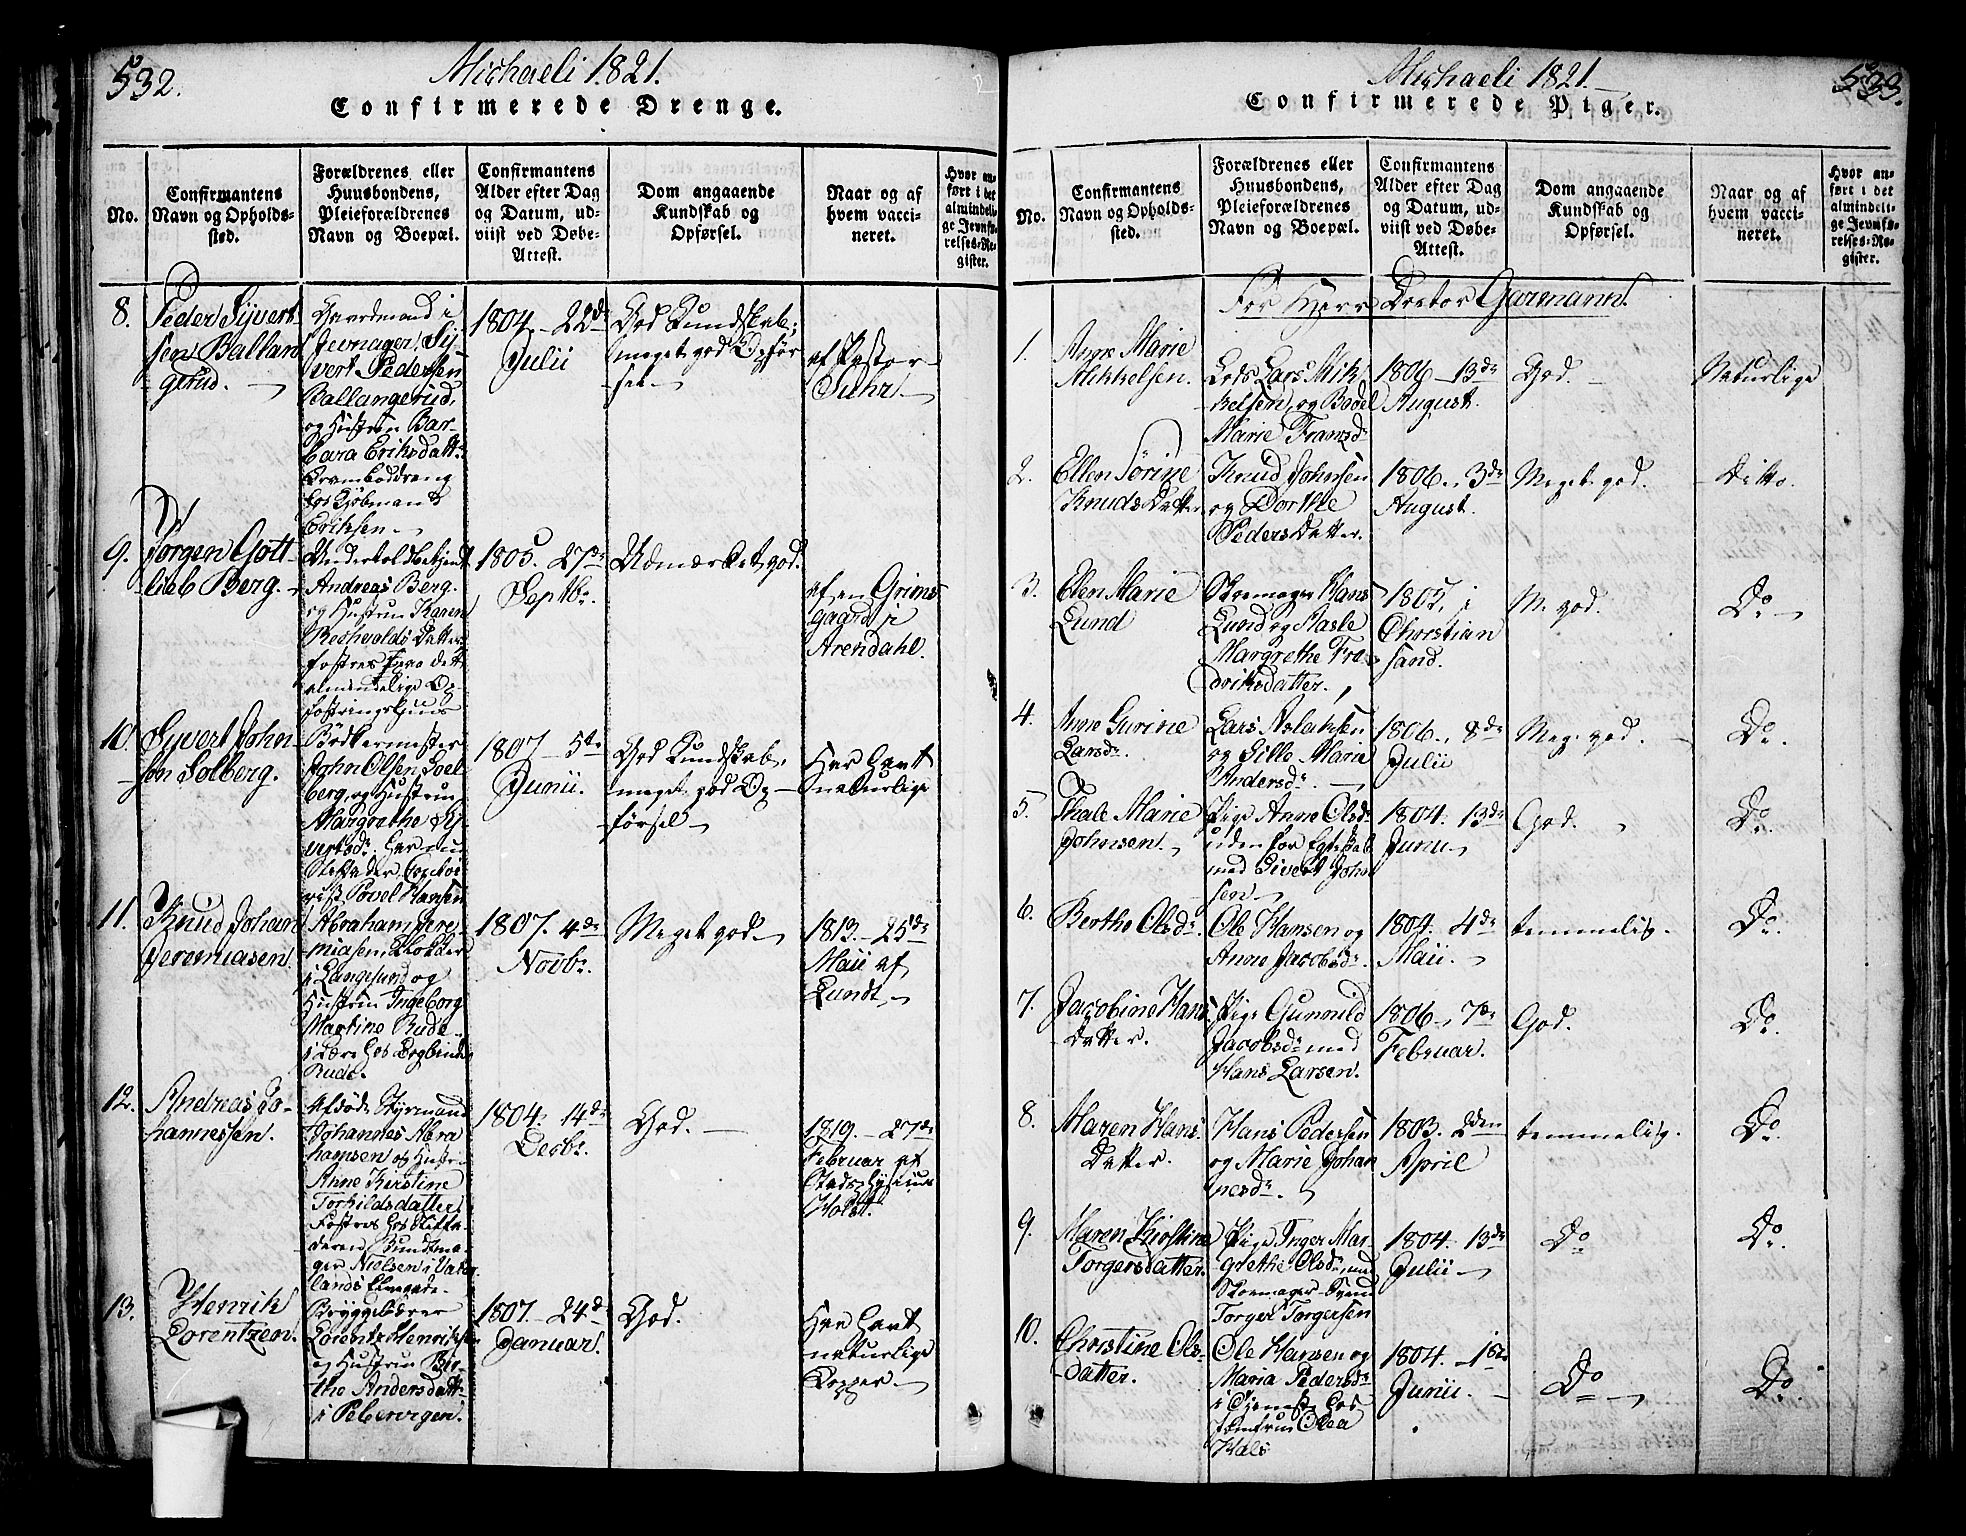 532.
Michaeli 1821.
Confirmerede Drenge.
No.
Confirmantens
Navn og Opholds-
sted.
Forældrenes eller
Huusbondens,
Pleieforældrenes
Navn og Boepæl.
Confirmantens
Alder efter Dag
og Datum, ud-
viist ved Døbe-
Attest.
Dom angaaende
Kundskab og
Opførsel.
Naar og af
hvem vacci-
neret.
Hvor an-
ført i det
almindeli-
ge Jevnfø-
relses-Re-
gister.
8.
Peder Syvert-
sen Ballan
-gerud.
Gaardmand i
Jevnager, Sy-
vert Pedersen
Ballangerud,
og Hustrue Bar-
bara Eriksdatt:
Kramboddreng
hos Kjøbmand
Eriksen
1804. 22de
Julii
God Kundskab;
meget god Opfør
sel
af Pastor
Suhr
9.
Jørgen Gott-
lieb Berg.
Andreas Berg.
og Hustrue Karen
fostres paa det
almindelige Op-
fostringshuus
1805. 27de
Septbr.
Udmærket god.
af en Grims
gaard i
Arendahl.
10.
Syvert John-
sen Solberg.
Bødkermester
John Olsen Soel-
berg, og Hustrue
Margrethe Sy-
vertsdr. har nu
Povel Hansen
1807 - 5te
Junii.
God Kundskab,
meget god Op-
førsel
Har havt
naturlige
11.
Knud Johan
Jeremiasen.
Abraham Jere-
miasen, Klokker
i Langesund og
Hustrue Ingeborg
Martine Rude
i Lære hos Bogbinder
Rude.
1807. 4de
Novbr.
Meget god
1813 - 25de
Maii af
Lundt
12.
Andreas Jo-
hannessen.
Afdøde Styrmand
Johannes Abra
hamsen og Hustrue
Anne Kirstine
Torkildsdatter
Fostres hos Stiffa-
deren, Bundtma-
ger Nielsen i Vater
lands
1804. 14de
Decbr.
God.
1819 - 27de
Februar af
Holst.
13.
Henrik
Lorentzen.
Lorentz Henriksen
og Hustrue Bir-
the Andersdatt.
i Pebervigen.
1807. 24de
Januar.
God.
Har havt
naturlige
Kopper
Michaeli 1821.
533.
Confirmerede Piger.
No.
Confirmantens
Navn og Opholds-
sted.
Forældrenes eller
Huusbondens,
Pleieforældrenes
Navn og Boepæl.
Confirmantens
Alder efter Dag
og Datum, ud-
viist ved Døbe-
Attest.
Dom angaaende
Kundskab og
Opførsel.
Naar og af
hvem vacci-
neret.
Hvor an-
ført i det
almindeli-
ge Jevnfø-
relses-Re-
gister.
For Herr Doctor Garmann.
1.
Anne Marie
Mikkelsen.
Lods Lars Mik-
kelsen, og Bodel
Marie Franzdr
1806 - 13de
August.
God.
Naturlige
2.
Ellen Sørine
KnudsDatter
Knud Johnsen
og Dorthe
PedersDatter.
1806. 3de
August.
Meget god.
Ditto.
3.
Elen Marie
Lund
Skomager Hans
Lund og Aasle
Margrethe Fre-
driksdatter.
1805, i
Christian
sand.
M. god.
Do
4.
Anne Gurine
Larsdr.
Lars Aslaksen
og Sille Maria
Andersdr.
1806. 8de
Julii
Meg. god.
Do.
5.
Thale Marie
Johnsen.
Pige Anne Olsdr.
uden for Egteskab
med Sivert John
sen
1804. 13de
Junii
God.
Do.
6.
Berthe Olsdr.
Ole Hansen og
Anne Jacobsdr.
1804. 4de
Maii.
temmelig.
Do.
7.
Jacobine Hans
Datter.
Pige Gunnild
Jacobsdr. med
Hans Larsen.
1806. 7de
Februar.
God.
Do.
8.
Maren Hans
Datter.
Hans Pedersen
og Marie Johan
nesdr.
1803. 2den
April
temmelig.
Do.
9.
Maren Kirstine
Torgersdatter.
Pige Inger Mar-
grethe Olsdr, med
Skomager Svend
Torger Torgersen
1804. 13de
Julii
Do
Do.
10.
Christine Ols-
datter.
Ole Hansen og
Maria Pedersdr
i Tjeneste hos
Jomfrue Olea
Hals
1804. 1ste
Junii.
Do
Do.